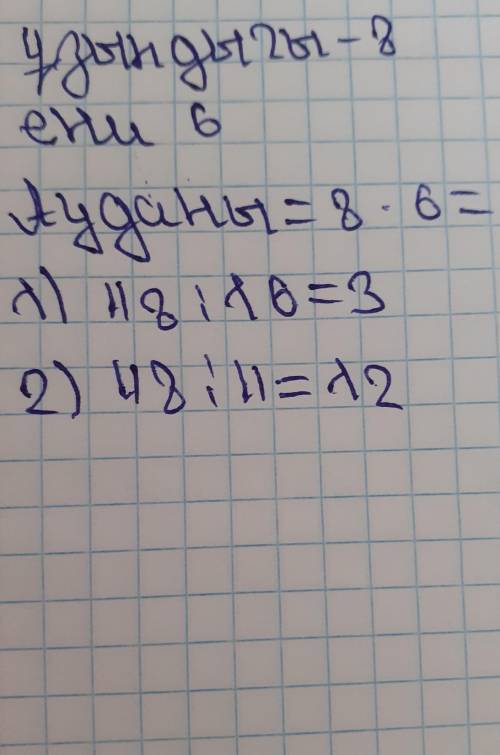 Ұзындығы - 8
ени 6
Ауданы = 8 · 6 =
1) 48 : 16 = 3
2) 48 : 4 = 12